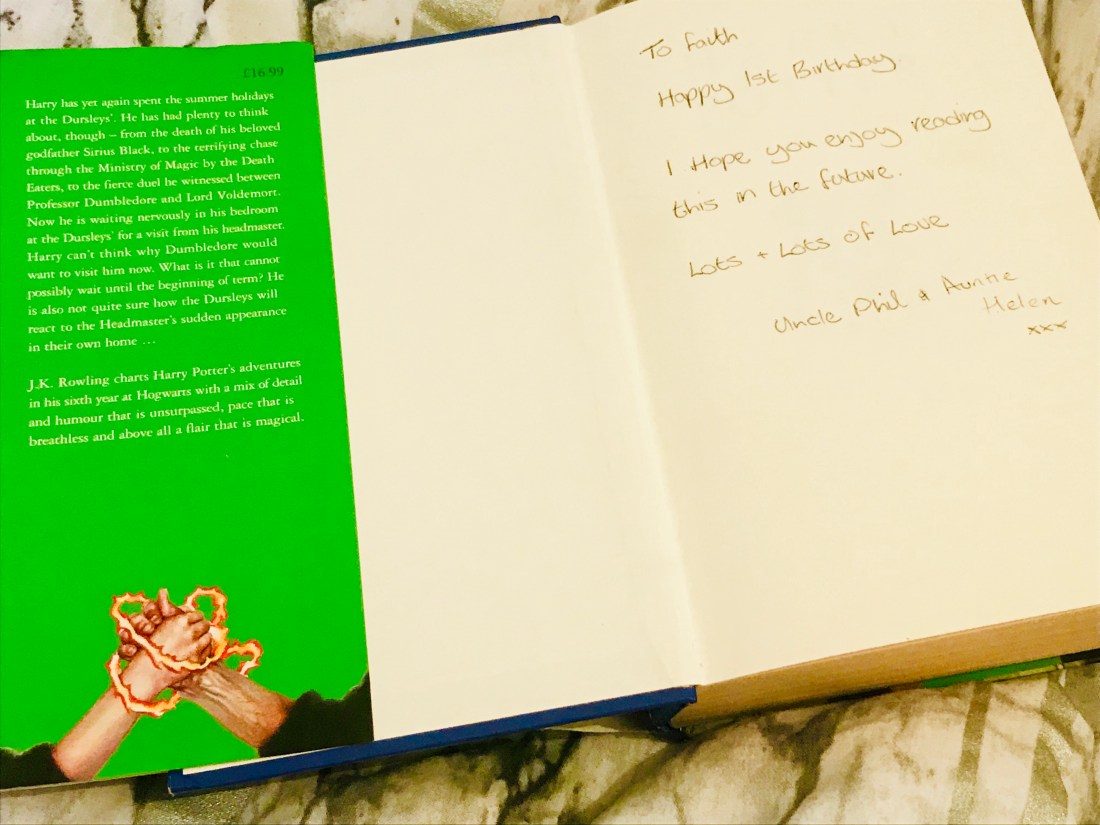 £16.99
Harry has yet again spent the summer holidays
at the Dursleys'. He has had plenty to think
about, though – from the death of his beloved
godfather Sirius Black, to the terrifying chase
through the Ministry of Magic by the Death
Eaters, to the fierce duel he witnessed between
Professor Dumbledore and Lord Voldemort.
Now he is waiting nervously in his bedroom
at the Dursleys' for a visit from his headmaster.
Harry can't think why Dumbledore would
want to visit him now. What is it that cannot
possibly wait until the beginning of term? He
is also not quite sure how the Dursleys will
react to the Headmaster's sudden appearance
in their own home …
J.K. Rowling charts Harry Potter's adventures
in his sixth year at Hogwarts with a mix of detail
and humour that is unsurpassed, pace that is
breathless and above all a flair that is magical.
To Faith
Happy 1st Birthday.
I Hope you enjoy reading
this in the future.
Lots + Lots of Love
Uncle Phil & Auntie
Helen
xxx